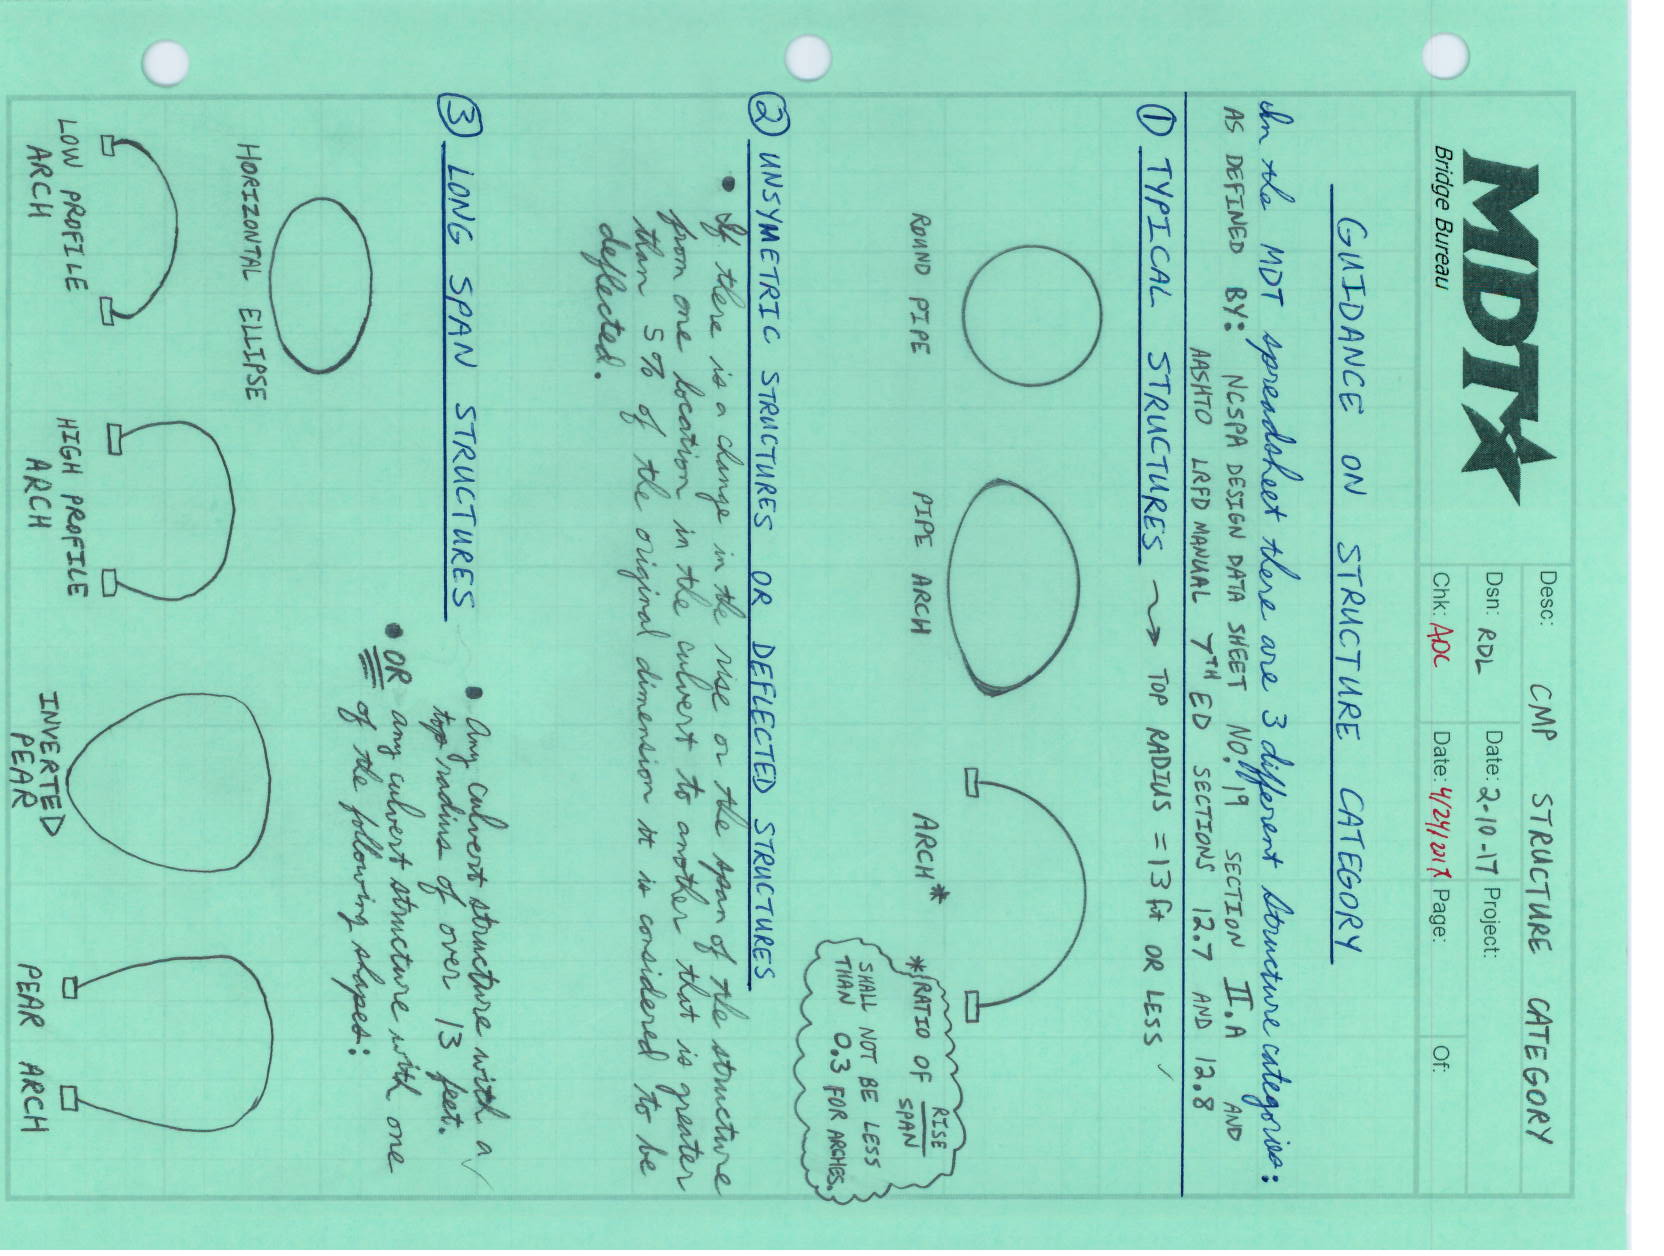 MDT
Bridge Bureau
Desc: CMP STRUCTURE CATEGORY
Dsn: RDL Date: 2-10-17 Project:
Chk: ADC Date: 4/24/2017 Page: Of:
GUIDANCE ON STRUCTURE CATEGORY
In the MDT spreadsheet there are 3 different structure categories:
AS DEFINED BY: NCSPA DESIGN DATA SHEET NO. 19 SECTION II.A AND
AASHTO LRFD MANUAL 7TH ED SECTIONS 12.7 AND 12.8
① TYPICAL STRUCTURES → TOP RADIUS = 13 ft OR LESS ✓
ROUND PIPE
PIPE ARCH
ARCH*
* RATIO OF RISE
SPAN
SHALL NOT BE LESS
THAN 0.3 FOR ARCHES.
② UNSYMETRIC STRUCTURES OR DEFLECTED STRUCTURES
• If there is a change in the rise or the span of the structure
from one location in the culvert to another that is greater
than 5% of the original dimension it is considered to be
deflected.
③ LONG SPAN STRUCTURES
• Any culvert structure with a
top radius of over 13 feet. ✓
• OR any culvert structure with one
of the following shapes:
HORIZONTAL ELLIPSE
LOW PROFILE
ARCH
HIGH PROFILE
ARCH
INVERTED
PEAR
PEAR ARCH